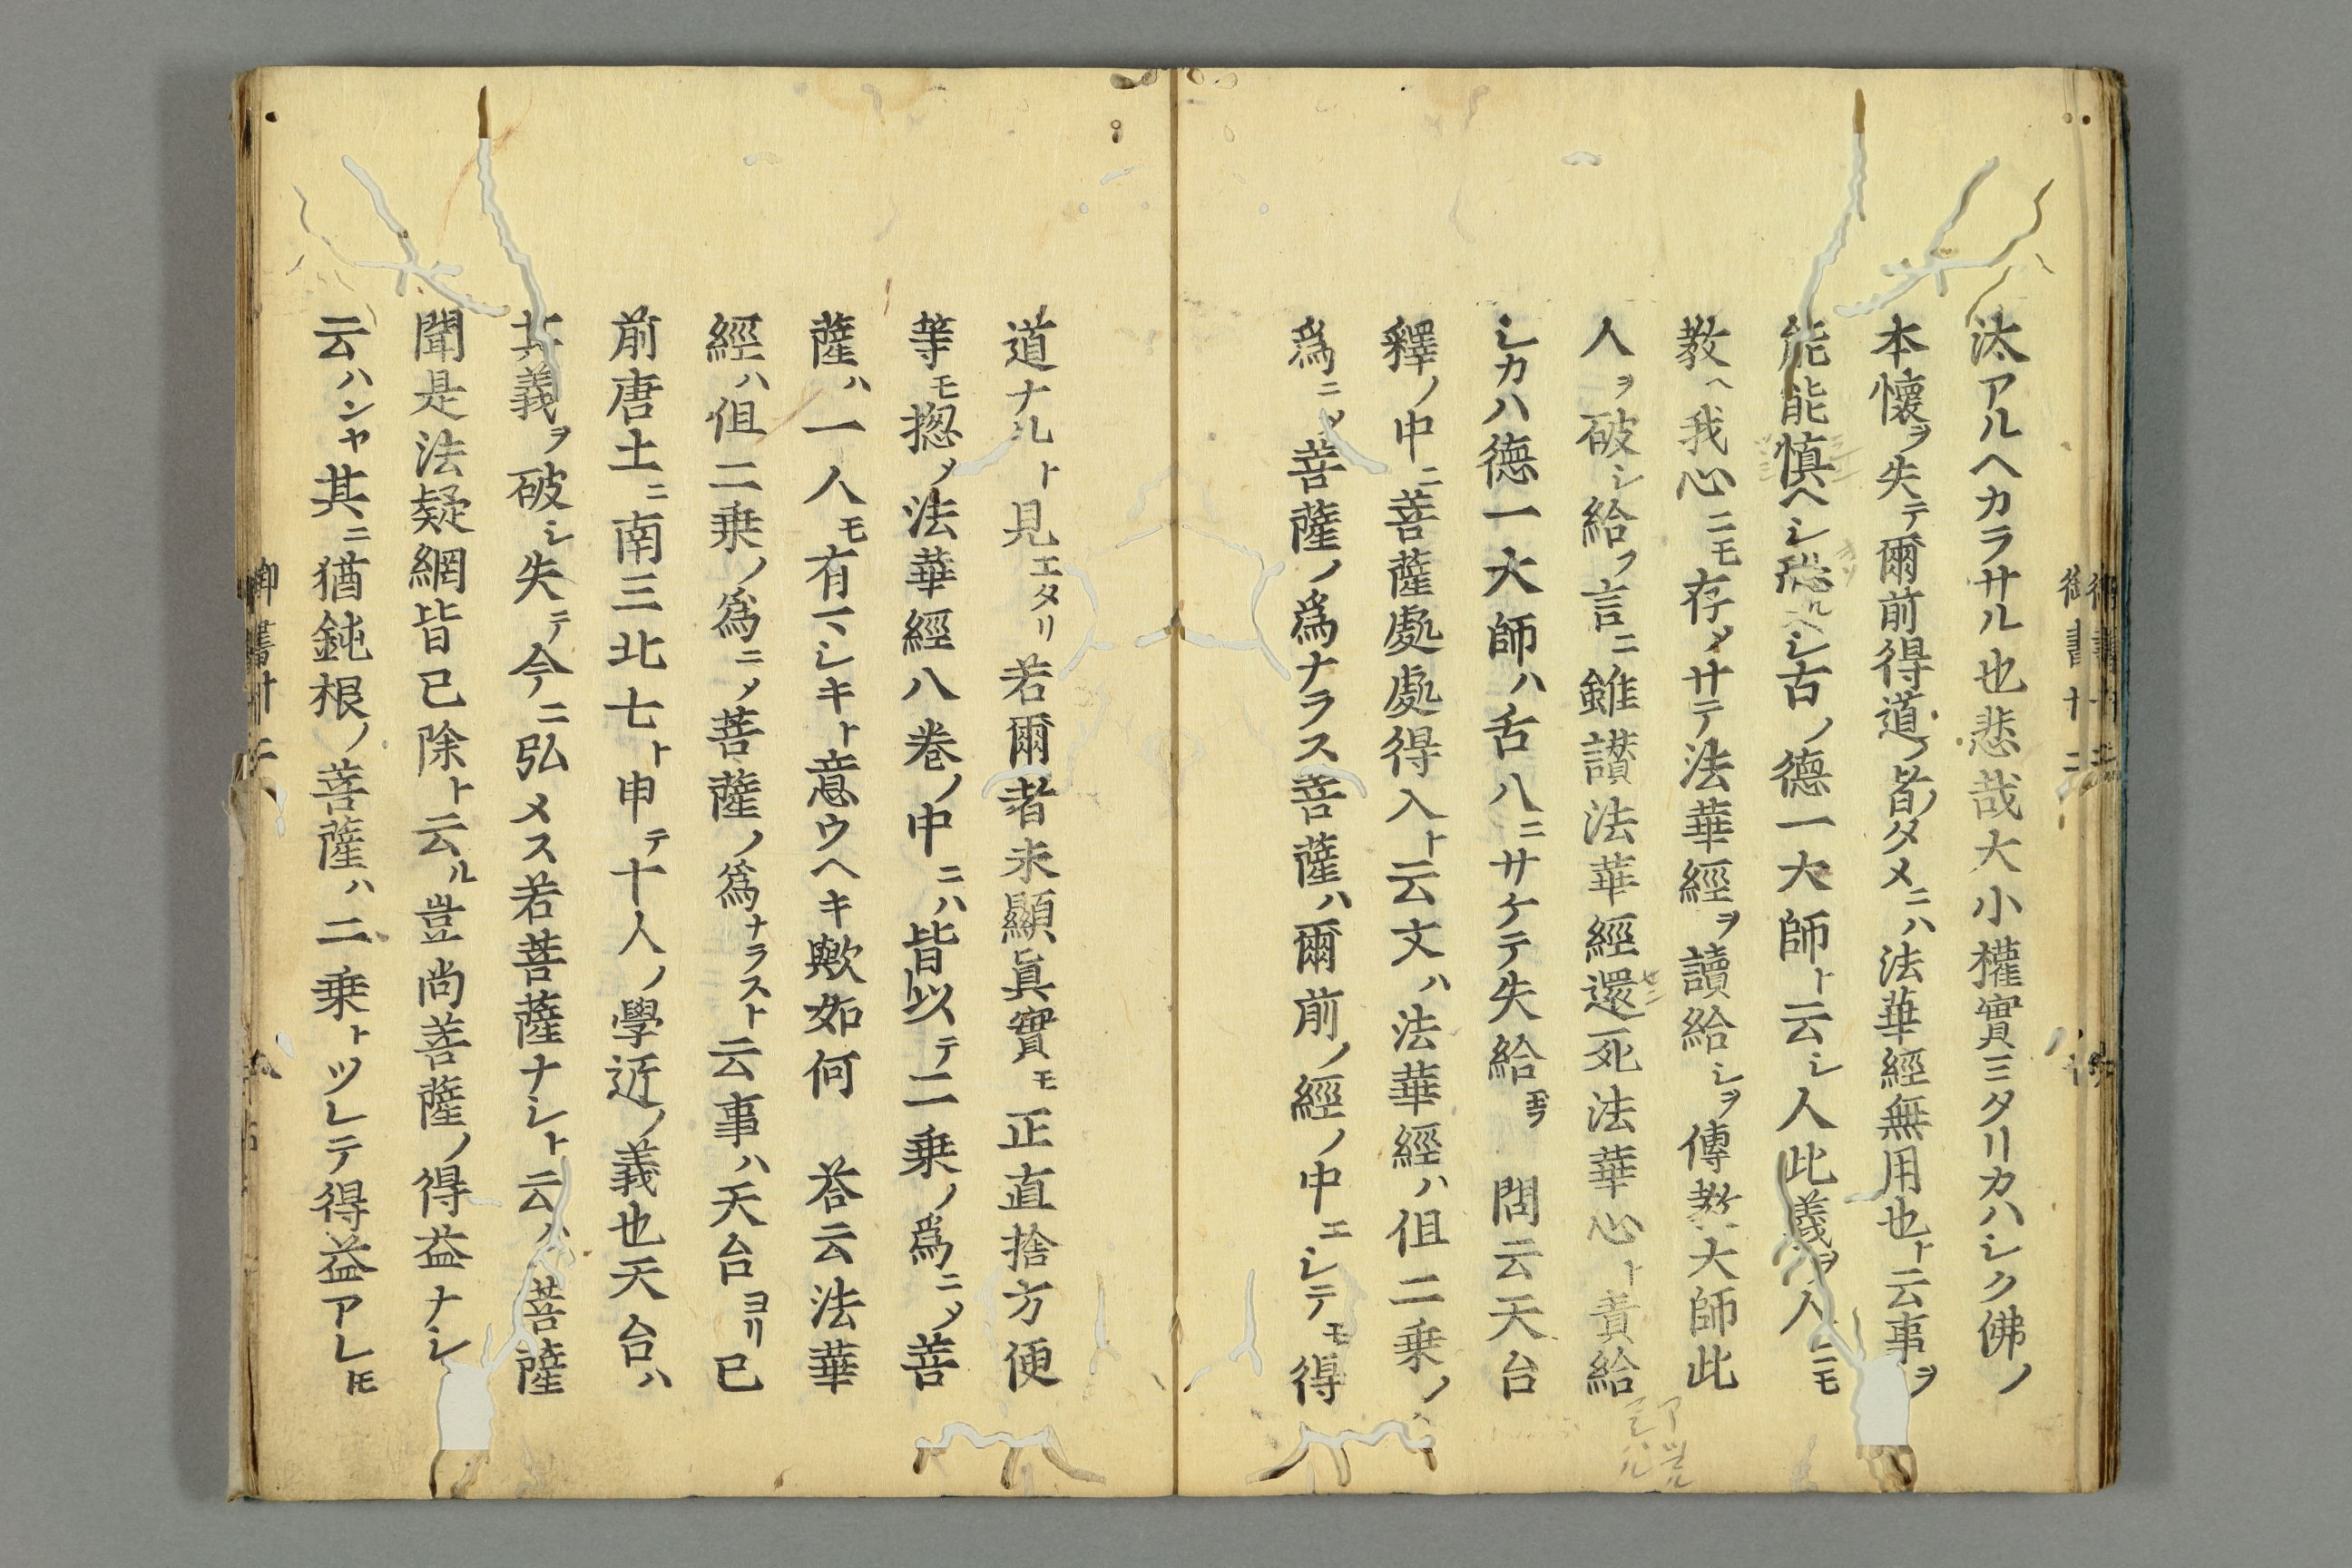 汰アルヘカラサル也悲哉大小權實ミタリカハシク佛ノ
本懷ヲ失テ爾前得道ノ者ノタメニハ法華經無用也ト云事ヲ
能能慎ヘシ恐ルヘシ古ノ德一大師ト云シ人此義ヲ人ニモ
教ヘ我心ニモ存メサテ法華經ヲ讀給シヲ傳教大師此
人ヲ破シ給フ言ニ雖讃法華經還死法華心ト責給
シカハ德一大師ハ舌八ニサケテ失給キ 問云天台
釋ノ中ニ菩薩處處得入ト云文ハ法華經ハ但二乘ノ
爲ニメ菩薩ノ爲ナラス菩薩ハ爾前ノ經ノ中エシテモ得
道ナルト見エタリ若爾者未顯眞實モ正直捨方便
等モ揔メ法華經八巻ノ中ニハ皆以テ二乘ノ爲ニメ菩
薩ハ一人モ有マシキト意ウヘキ歟如何 荅云法華
經ハ但二乘ノ爲ニメ菩薩ノ爲ナラスト云事ハ天台ヨリ已
前唐土ニ南三北七ト申テ十人ノ學匠ノ義也天台ハ
其義ヲ破シ失テ今ニ弘メス若菩薩ナシト云ハ菩薩
聞是法疑網皆已除ト云ル豈尚菩薩ノ得益ナシ
云ハンヤ其ニ猶鈍根ノ菩薩ハ二乘トツレテ得益アレトモ
御書十二